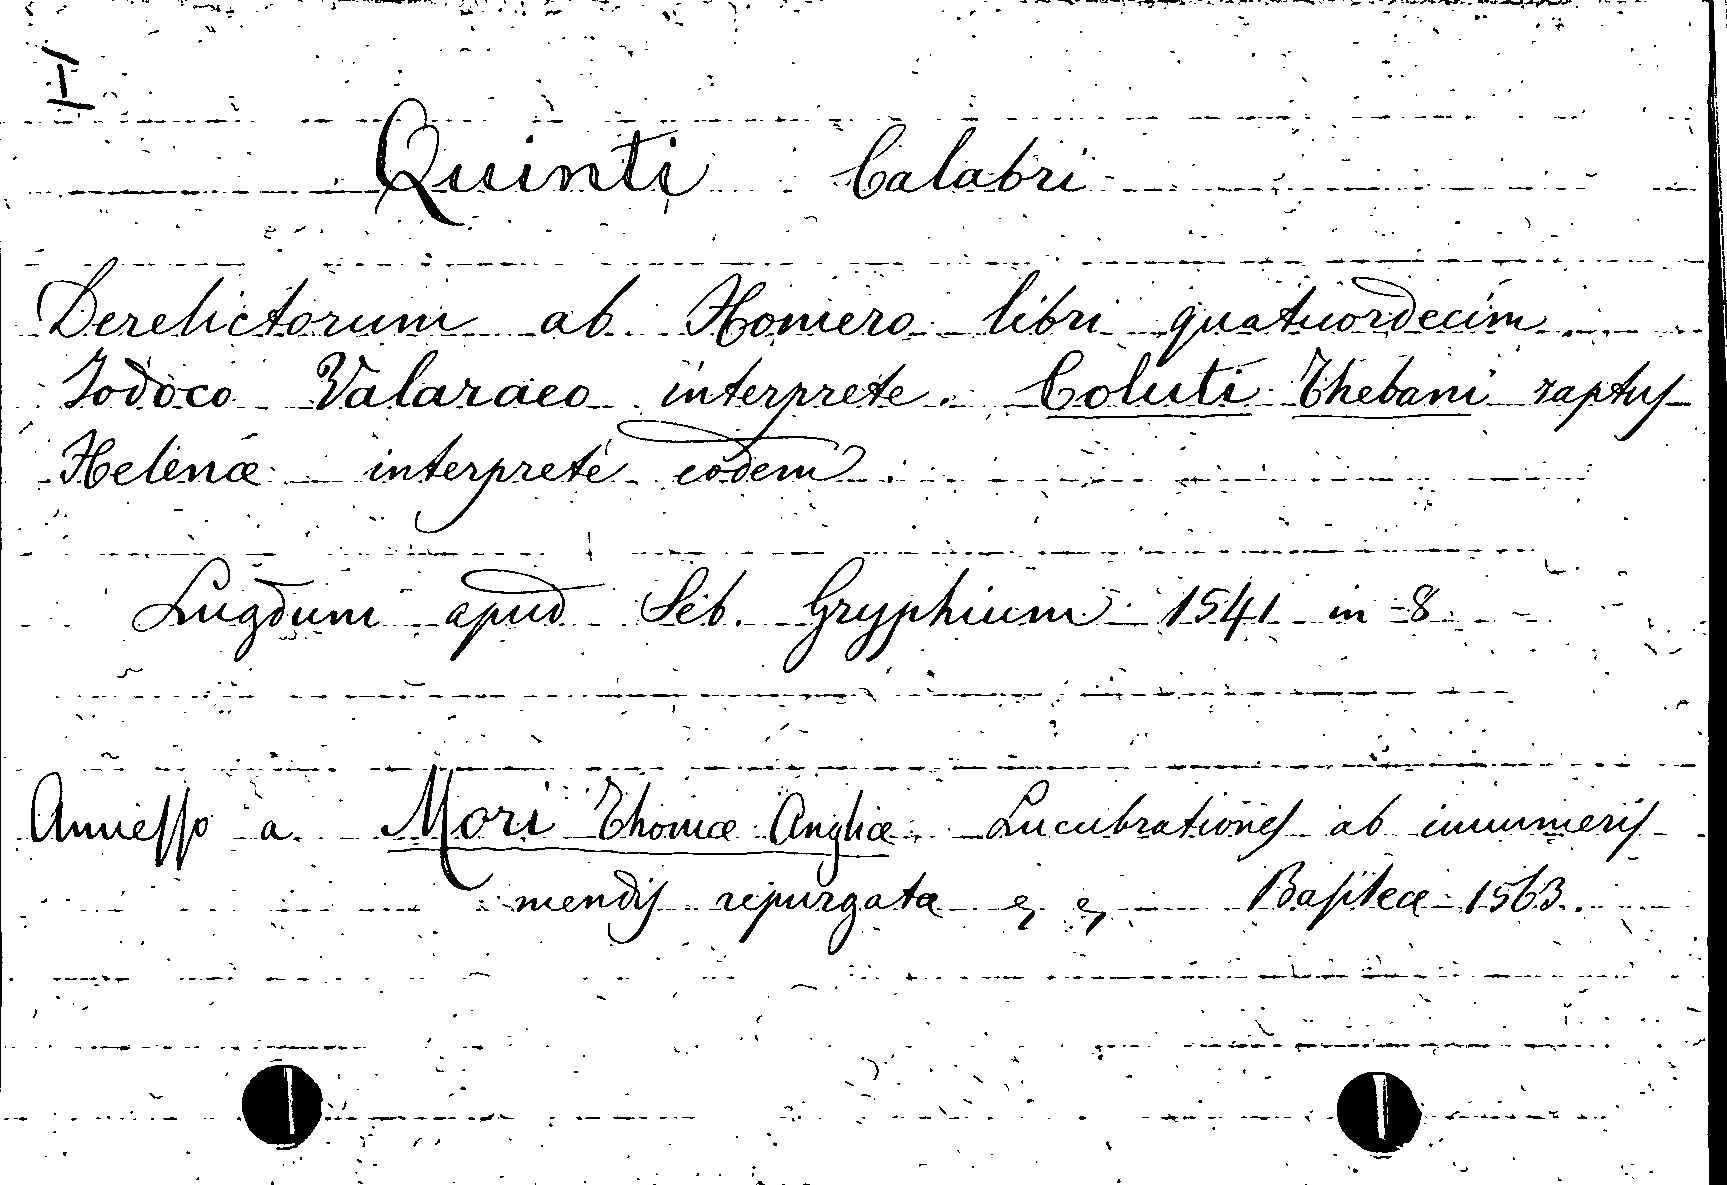 H
Quinti Calabri
Derelictorum ab Homero libri quatuordecim.
Jodoco Valaraeo interprete. Coluti Thebani raptus
Helenæ interprete eodem
Lugduni apud Seb. Gryphium 1541 in 8
Annesso a Mori Thomæ Angliæ Lucubrationes ab innumeris
mendis repurgatæ & & Basileæ 1563.